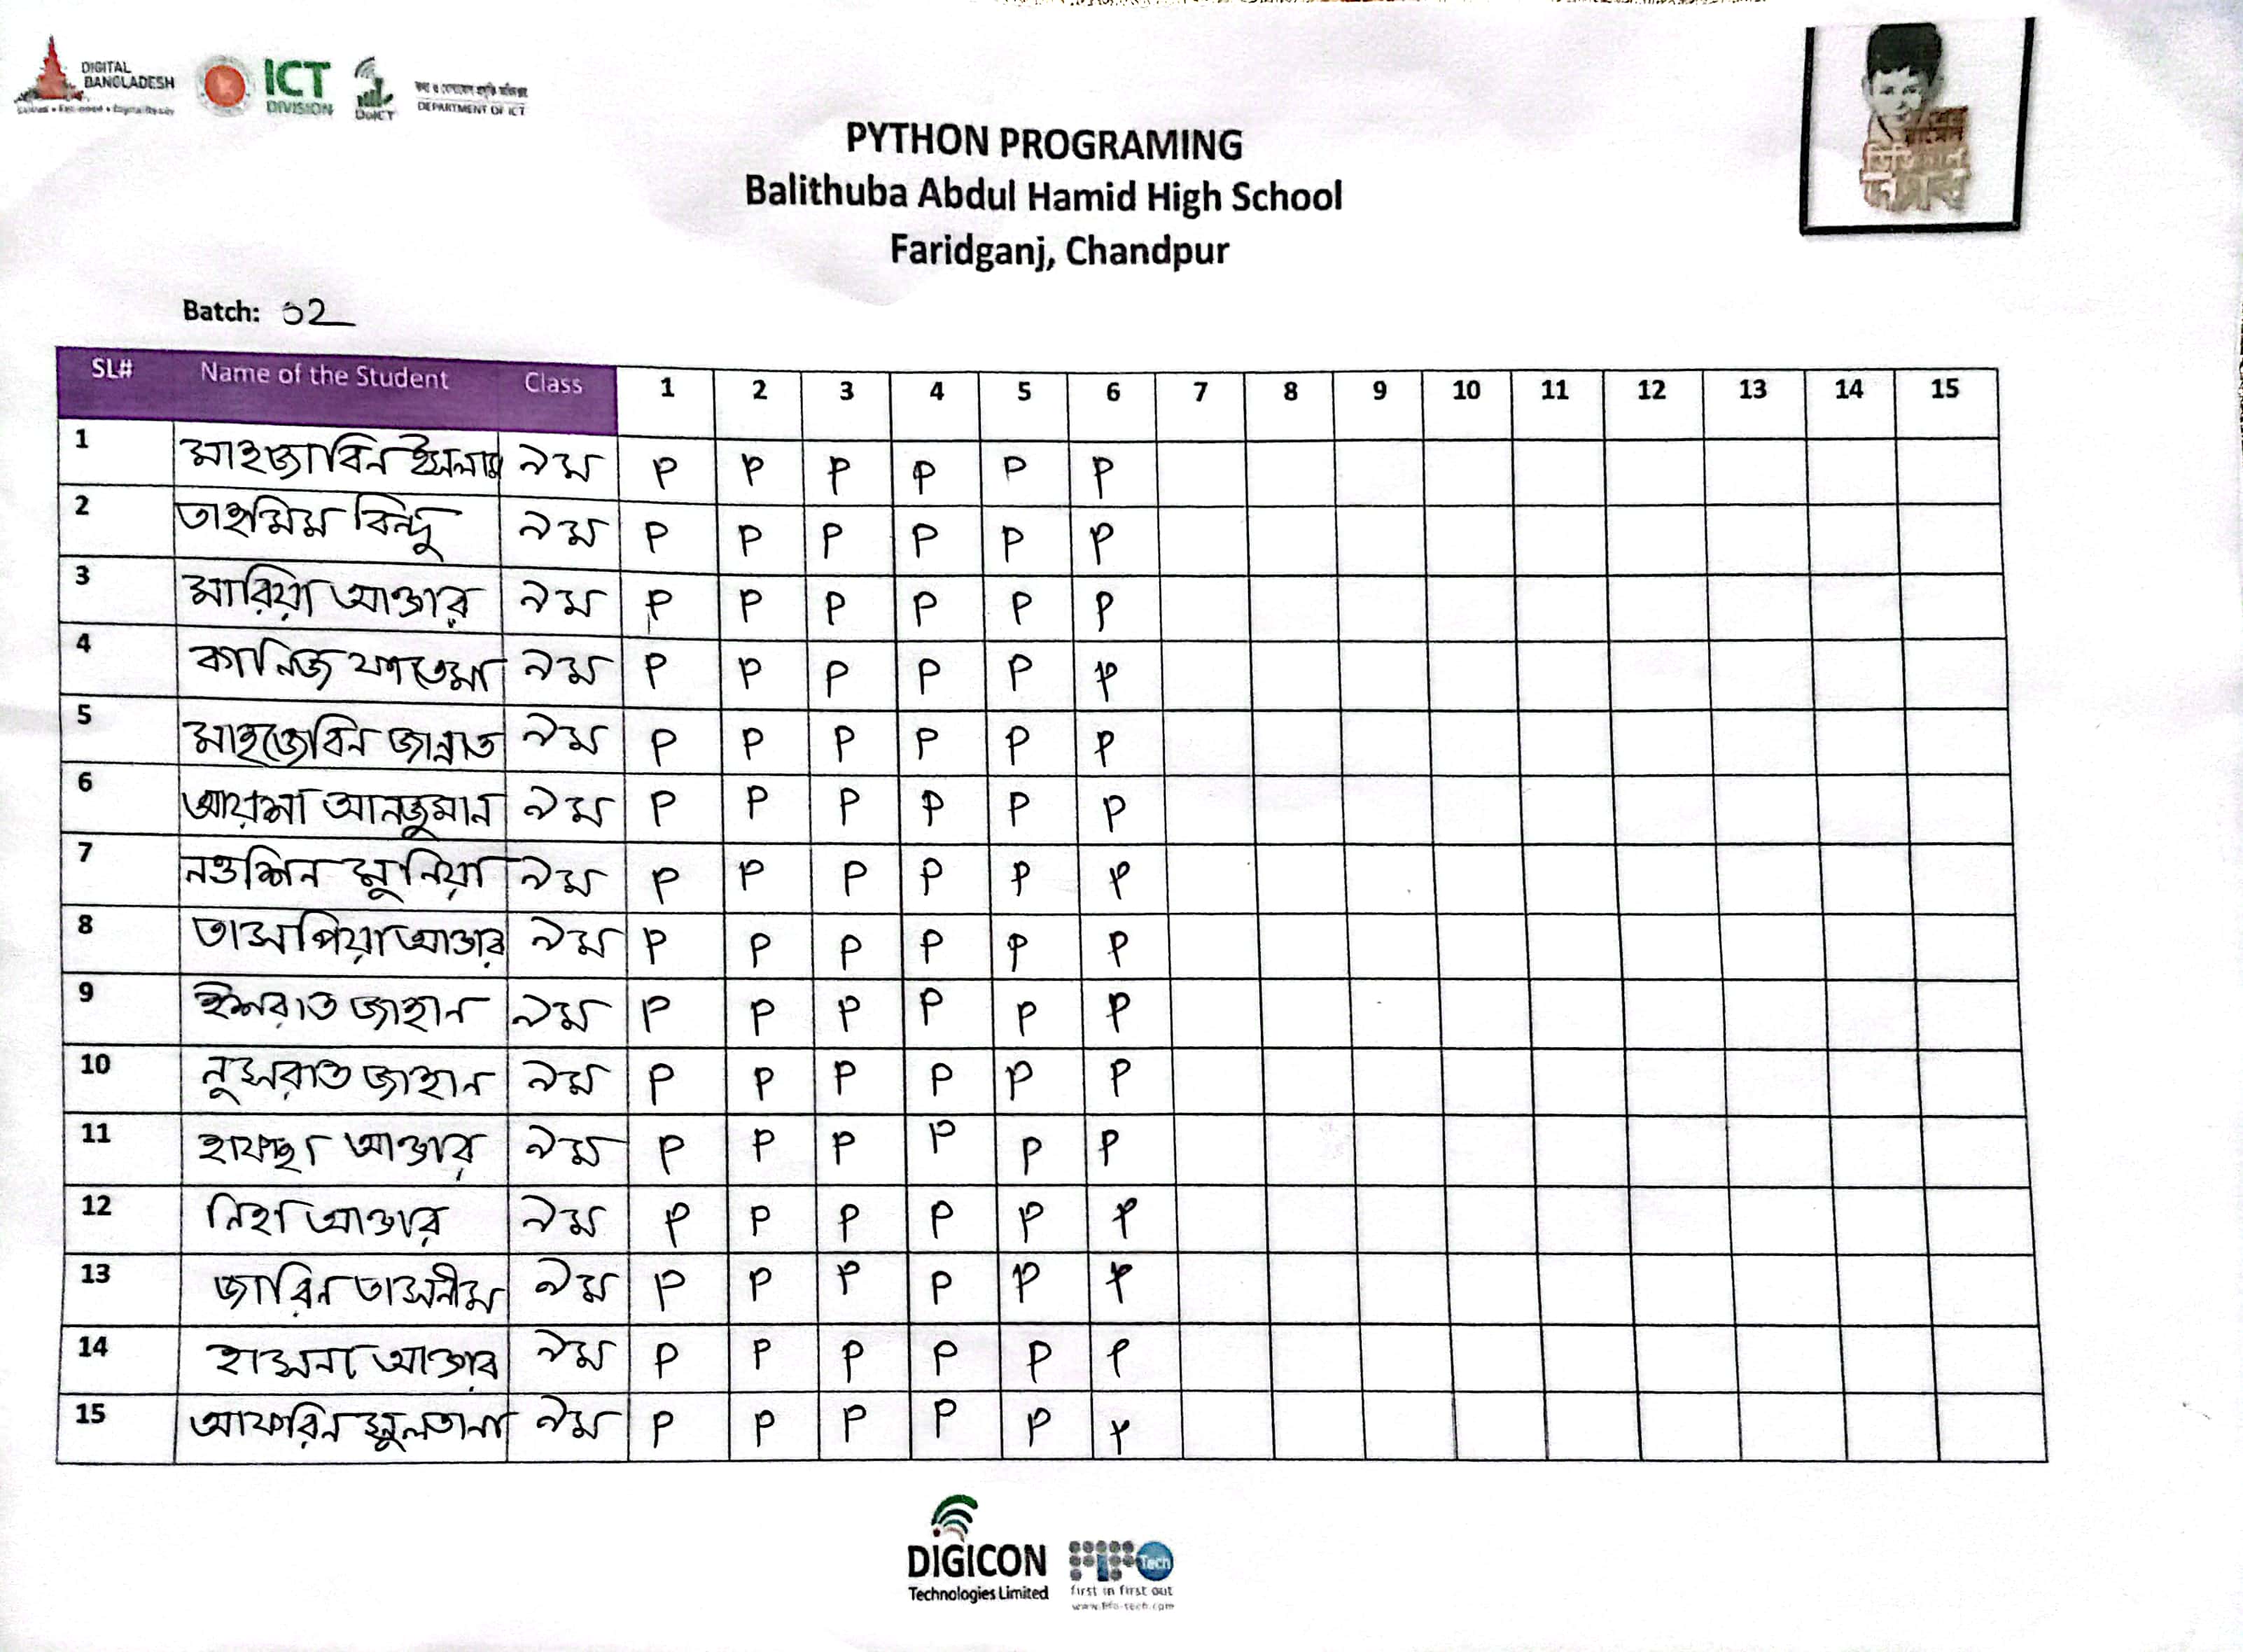 DIGITAL
BANGLADESH
ICT
DIVISION
DoICT
তথ্য ও যোগাযোগ প্রযুক্তি অধিদপ্তর
DEPARTMENT OF ICT
PYTHON PROGRAMING
Balithuba Abdul Hamid High School
Faridganj, Chandpur
Batch: 02
SL# Name of the Student Class 1 2 3 4 5 6 7 8 9 10 11 12 13 14 15
1 মাহজাবিন ইসলাম ৯ম P P P P P P
2 তাহমিম বিন্দু ৯ম P P P P P P
3 মারিয়া আক্তার ৯ম P P P P P P
4 কানিজ ফাতেমা ৯ম P P P P P P
5 মাহজেবিন জান্নাত ৯ম P P P P P P
6 আয়শা আনজুমান ৯ম P P P P P P
7 নওশিন মুনিয়া ৯ম P P P P P P
8 তাসপিয়া আক্তার ৯ম P P P P P P
9 ইশরাত জাহান ৯ম P P P P P P
10 নুসরাত জাহান ৯ম P P P P P P
11 হাফছা আক্তার ৯ম P P P P P P
12 নিহা আক্তার ৯ম P P P P P P
13 জারিন তাসনীম ৯ম P P P P P P
14 হাসনা আক্তার ৯ম P P P P P P
15 আফরিন সুলতানা ৯ম P P P P P P
DIGICON
Technologies Limited
Tech
first in first out
www.fifo-tech.com